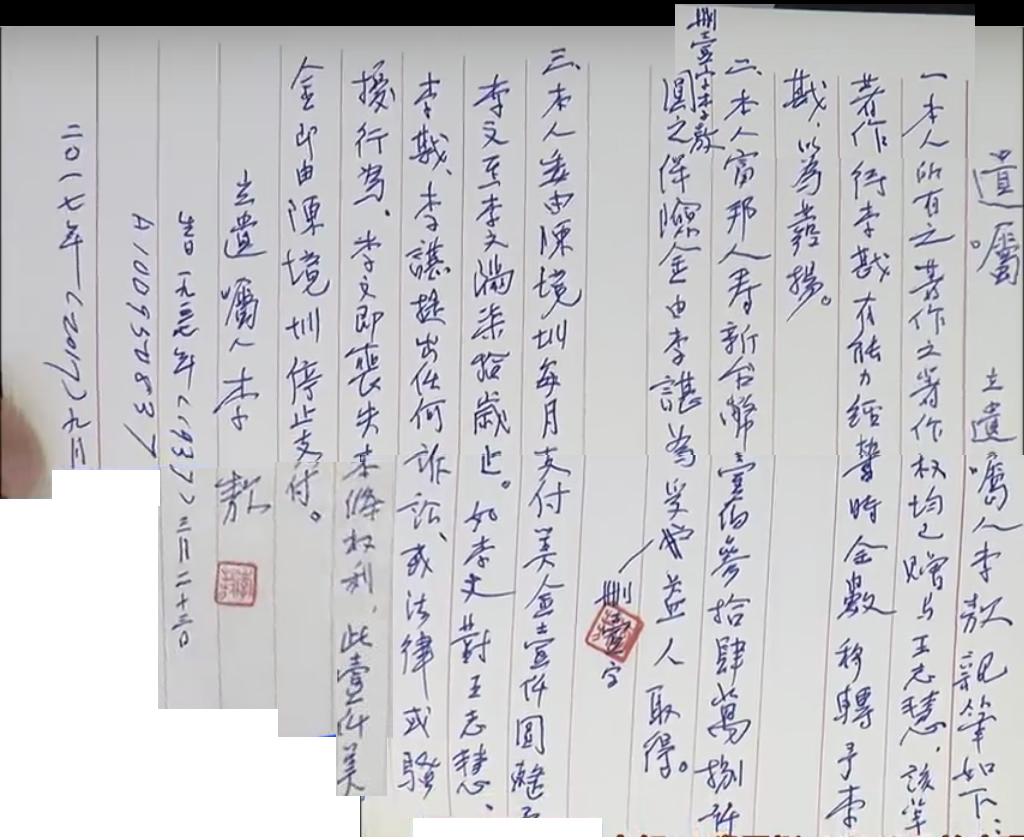 遺囑。
立遺囑人李敖親筆如下：
一、本人所有之著作之著作权均已赠与王志慧，該筆
著作俟李戡有能力經营時全數移轉予李
戡，以為薪揚。
二、本人富邦人寿新台幣壹佰參拾肆萬捌仟
圓之保險金由李諶為受益人取得。
刪壹字李敖
刪壹字
三、本人委由陳境圳每月支付美金壹仟圓整予
李文至李文滿柒拾歲止。如李文對王志慧、
李戡、李諶提出任何訴訟、或法律或騷
擾行為、李文即喪失某條权利，此壹仟美
金即由陳境圳停止支付。
立遺囑人李敖
生日一九三七年（1937）
A100950837
二〇一七年（2017）九三